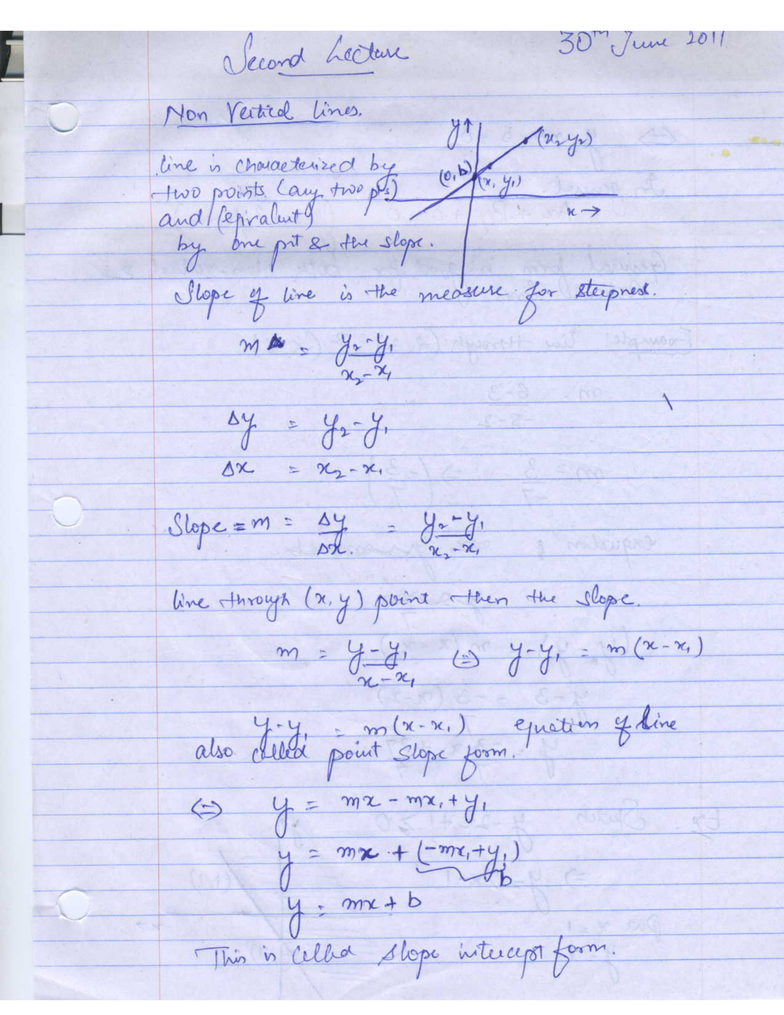 Second Lecture
30th June 2011
Non Vertical Lines.
y↑
(x₂ y₂)
(0, b)
(x, y₁)
x →
line is characterized by
two points (any two pts)
and (eqivalent)
by one pit & the slope.
Slope of line is the measure for steepness.
m = y₂-y₁ / x₂-x₁
Δy = y₂-y₁
Δx = x₂-x₁
Slope = m = Δy/Δx. = y₂-y₁ / x₂-x₁
line through (x, y) point then the slope.
m = y-y₁ / x-x₁ ⇔ y-y₁ = m(x-x₁)
y-y₁ = m(x-x₁) equation of line
also called point slope form.
⇔ y = mx - mx₁ + y₁
y = mx + (-mx₁+y₁)
b
y = mx + b
This is called slope intercept form.